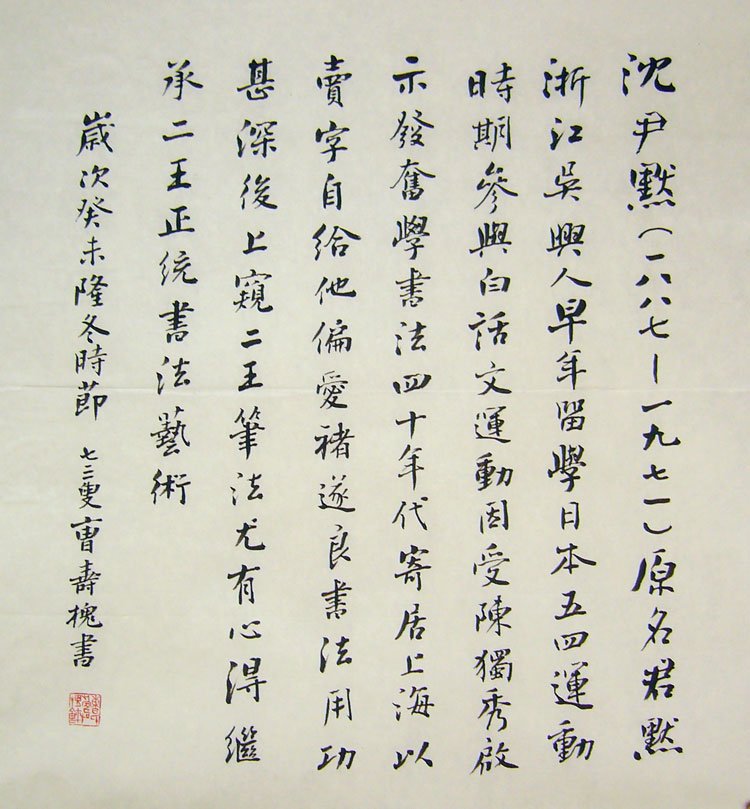 沈尹默（一八八七—一九七一）原名君默
浙江吳興人早年留學日本五四運動
時期參與白話文運動因受陳獨秀啟
示發奮學書法四十年代寄居上海以
賣字自給他偏愛褚遂良書法用功
甚深後上窺二王筆法尤有心得繼
承二王正統書法藝術
歲次癸未隆冬時節 七二叟曹壽槐書